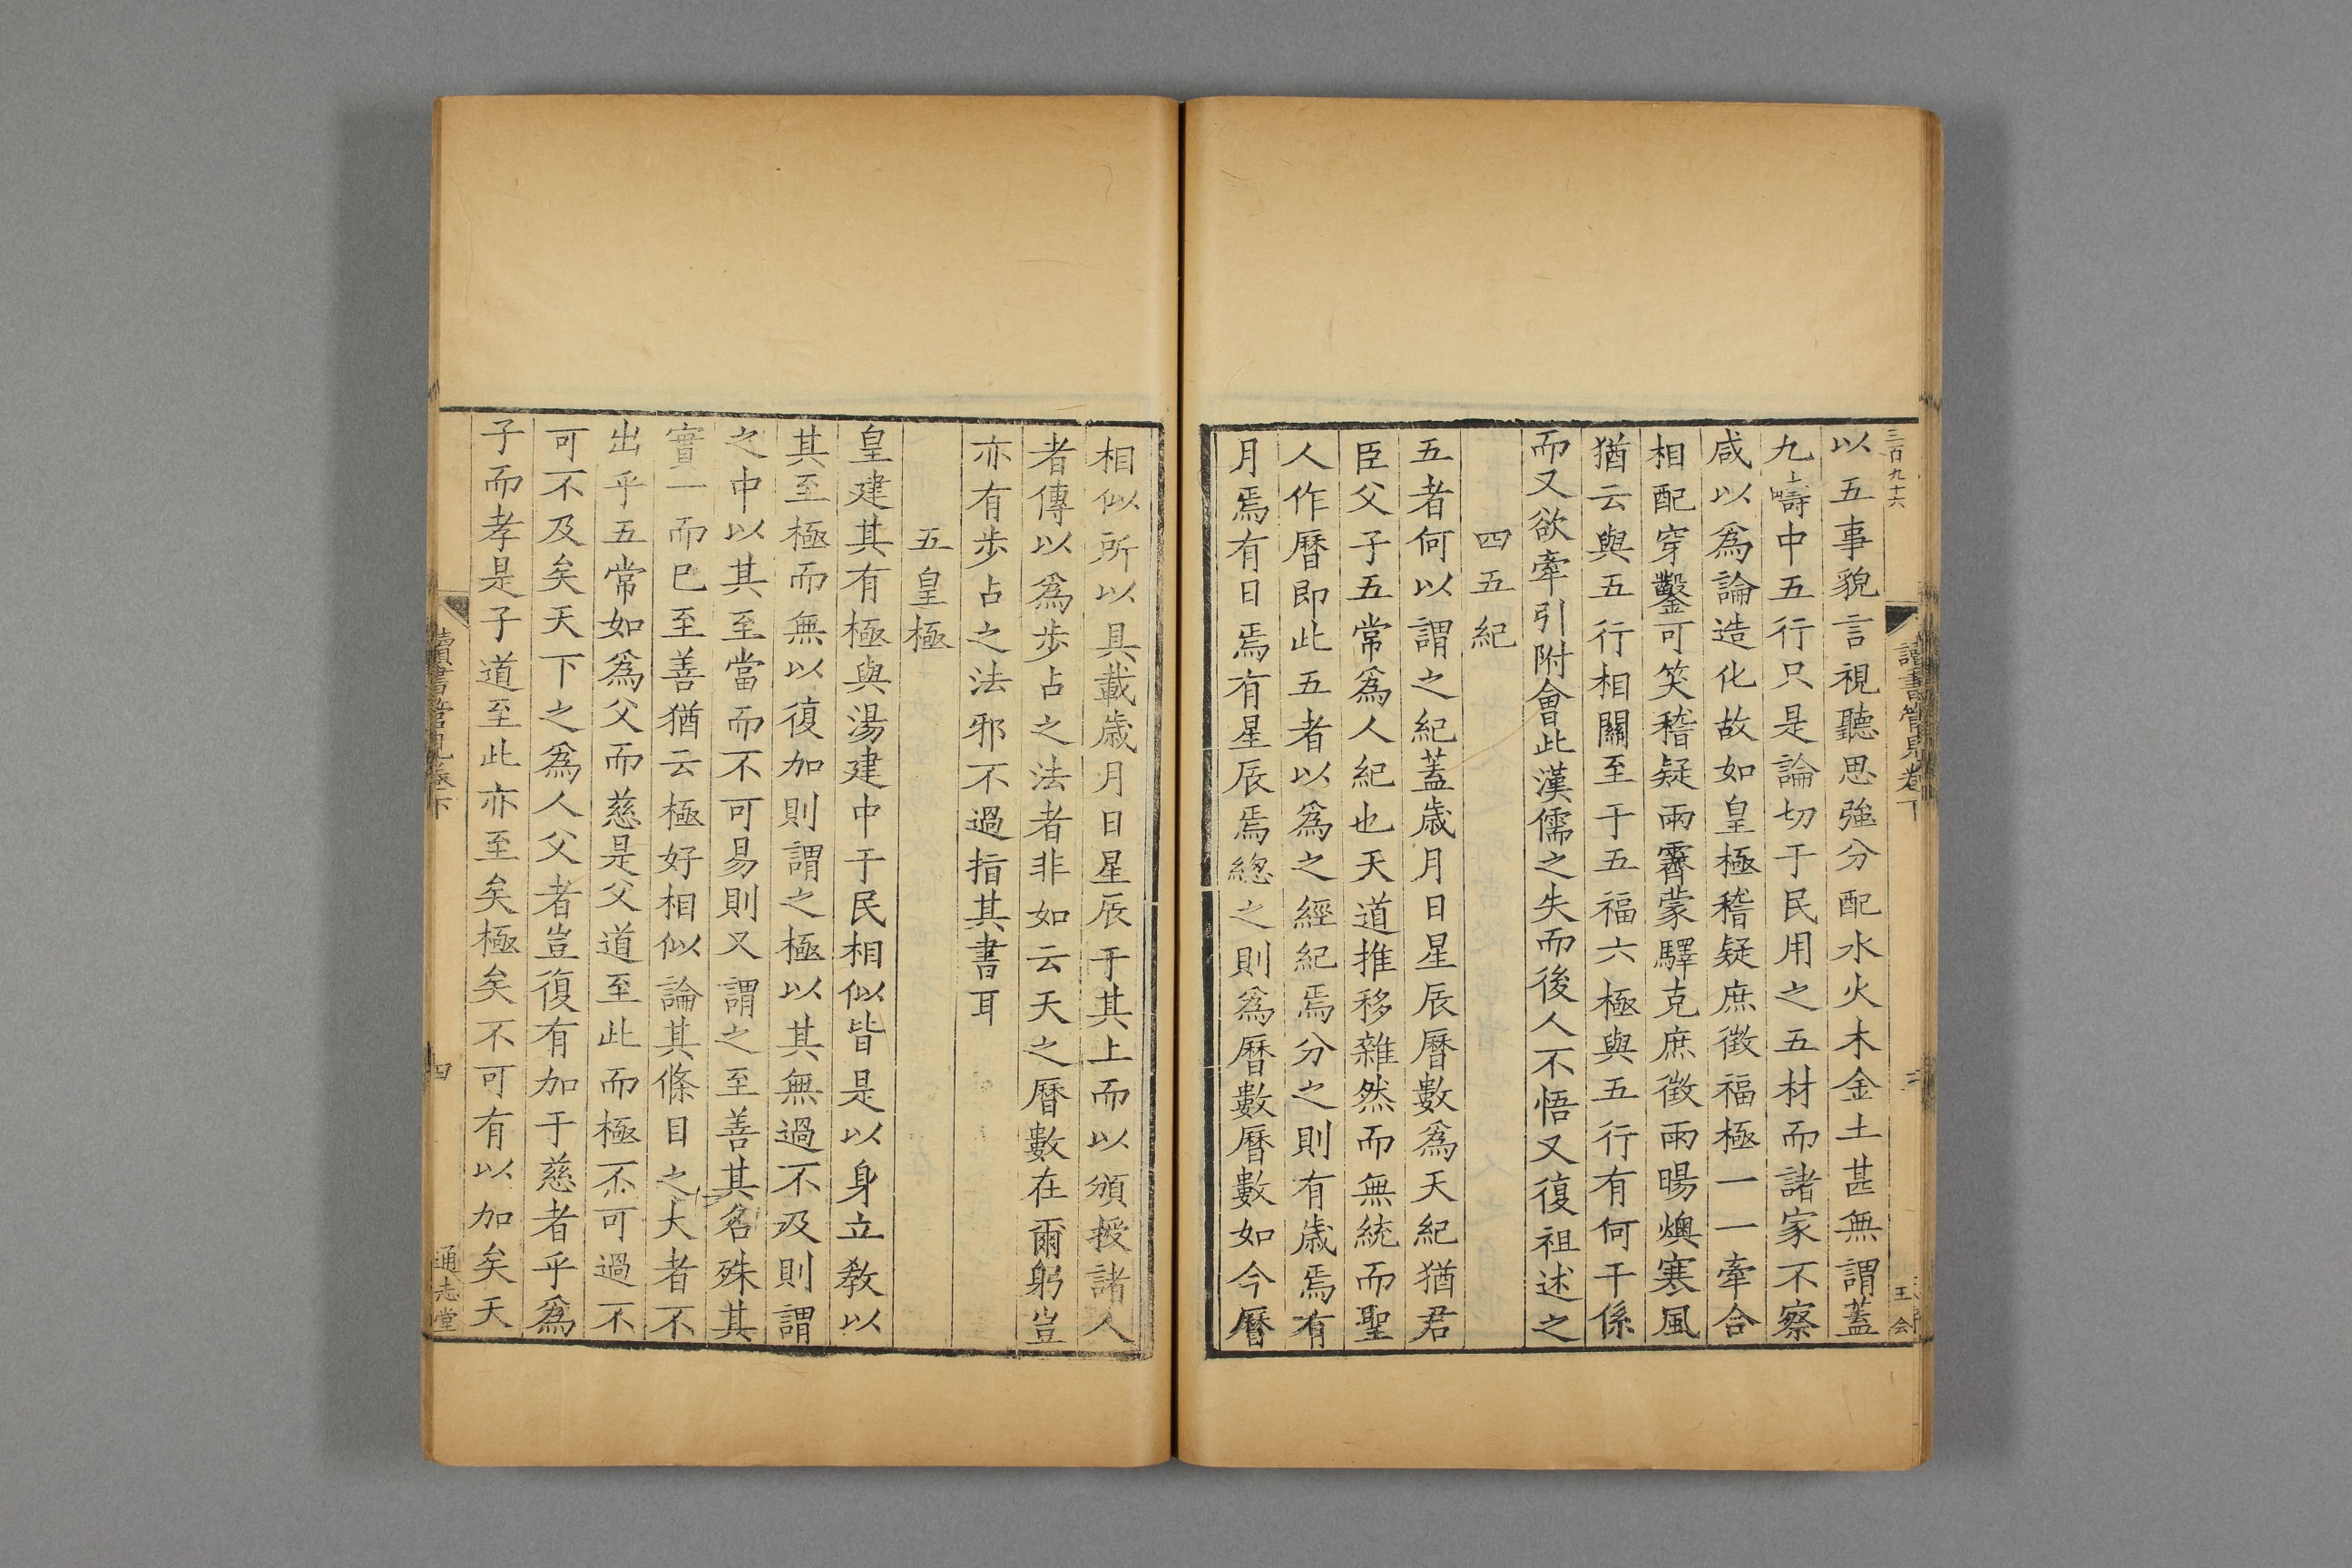 三百九十六
讀書管見卷下
三
王公
以五事貌言視聽思強分配水火木金土甚無謂蓋
九疇中五行只是論切于民用之五材而諸家不察
咸以爲論造化故如皇極稽疑庶徵福極一一牽合
相配穿鑿可笑稽疑雨霽蒙驛克庶徵雨暘燠寒風
猶云與五行相關至于五福六極與五行有何干係
而又欲牽引附會此漢儒之失而後人不悟又復祖述之
四五紀
五者何以謂之紀蓋歲月日星辰曆數爲天紀猶君
臣父子五常爲人紀也天道推移雜然而無統而聖
人作曆即此五者以爲之經紀焉分之則有歲焉有
月焉有日焉有星辰焉總之則爲曆數曆數如今曆
相似所以具載歲月日星辰于其上而以頒授諸人
者傳以爲歩占之法者非如云天之曆數在爾躬豈
亦有歩占之法邪不過指其書耳
五皇極
皇建其有極與湯建中于民相似皆是以身立敎以
其至極而無以復加則謂之極以其無過不及則謂
之中以其至當而不可易則又謂之至善其名殊其
實一而已至善猶云極好相似論其條目之大者不
出乎五常如爲父而慈是父道至此而極不可過不
可不及矣天下之爲人父者豈復有加于慈者乎爲
子而孝是子道至此亦至矣極矣不可有以加矣天
讀書管見卷下
四
通志堂